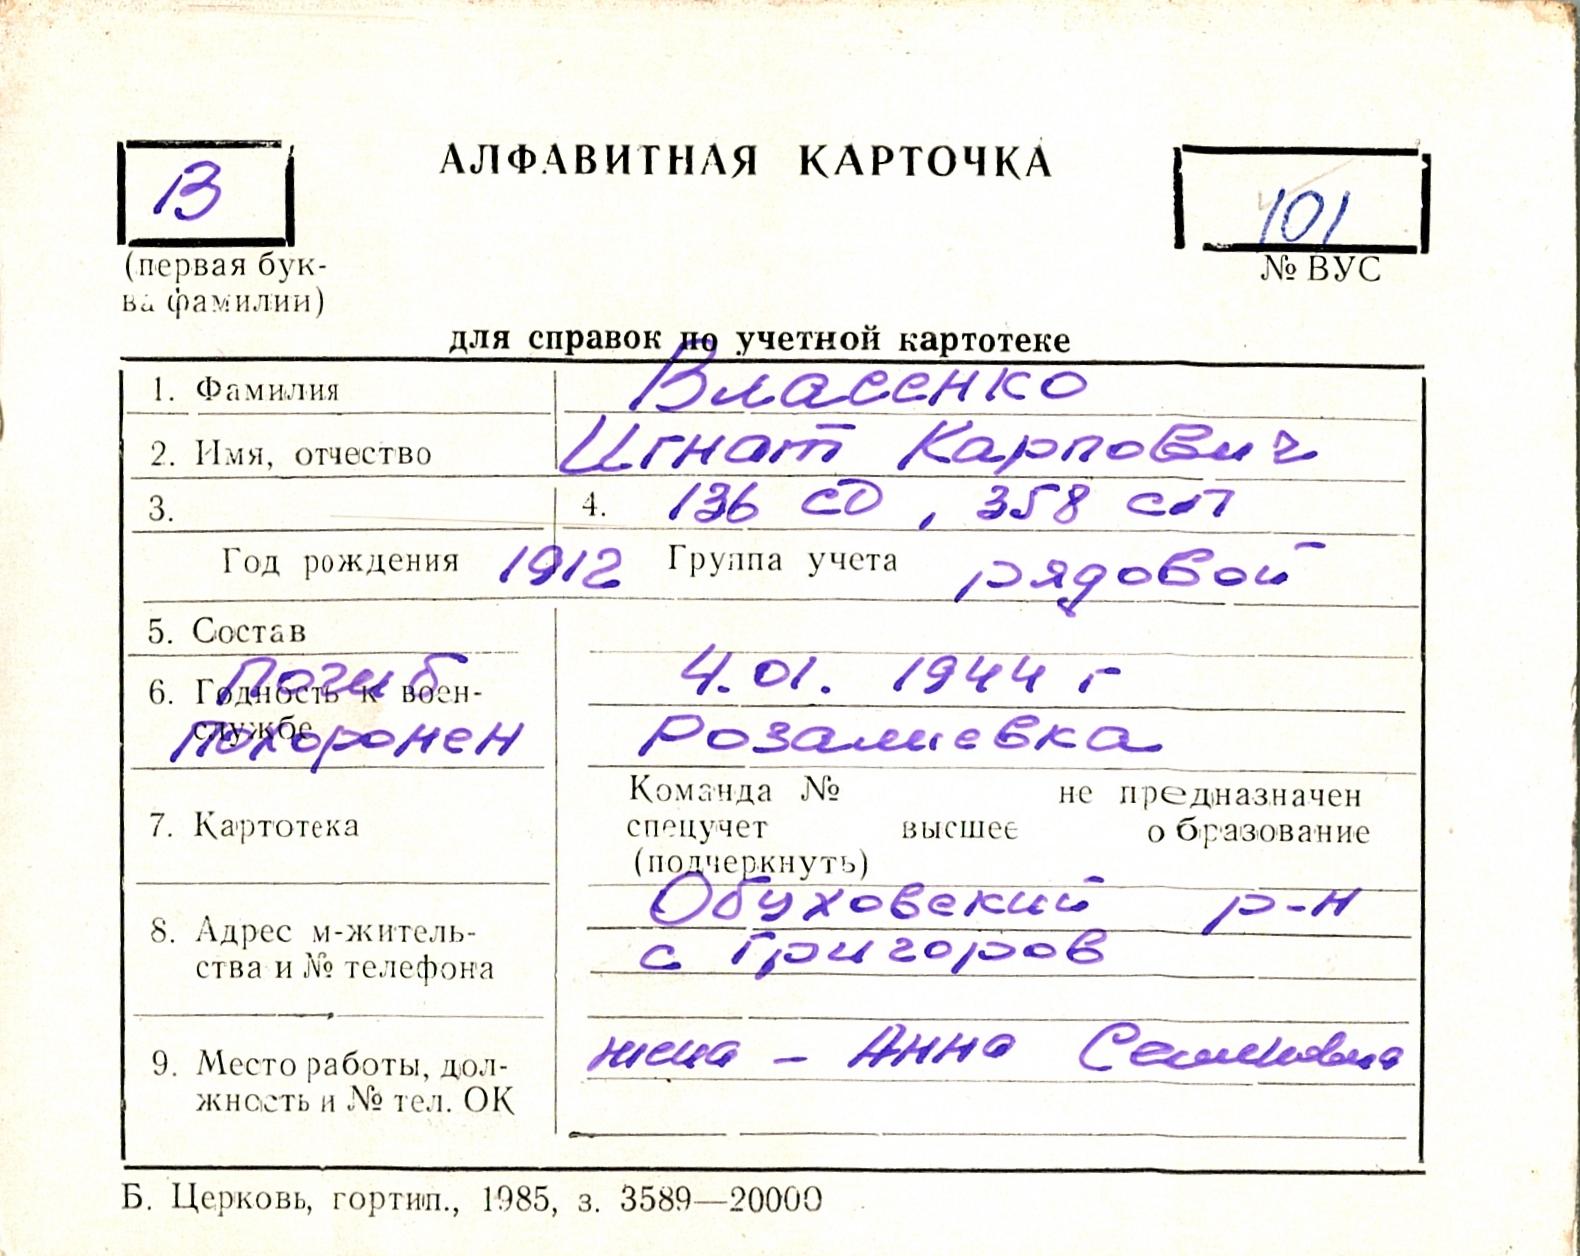 АЛФАВИТНАЯ КАРТОЧКА
В
101
(первая бук-
ва фамилии)
№ ВУС
для справок по учетной картотеке
1. Фамилия Власенко
2. Имя, отчество Игнат Карпович
3. 4. 136 сд, 358 сп
Год рождения 1912 Группа учета рядовой
5. Состав
Погиб 4.01. 1944 г
6. Годность к воен-
службе
Похоронен Розалиевка
7. Картотека
Команда № не предназначен
спецучет высшее образование
(подчеркнуть)
8. Адрес м-житель-
ства и № телефона
Обуховский р-н
с Григоров
9. Место работы, дол-
жность и № тел. ОК
жена - Анна
Б. Церковь, гортип., 1985, з. 3589—20000